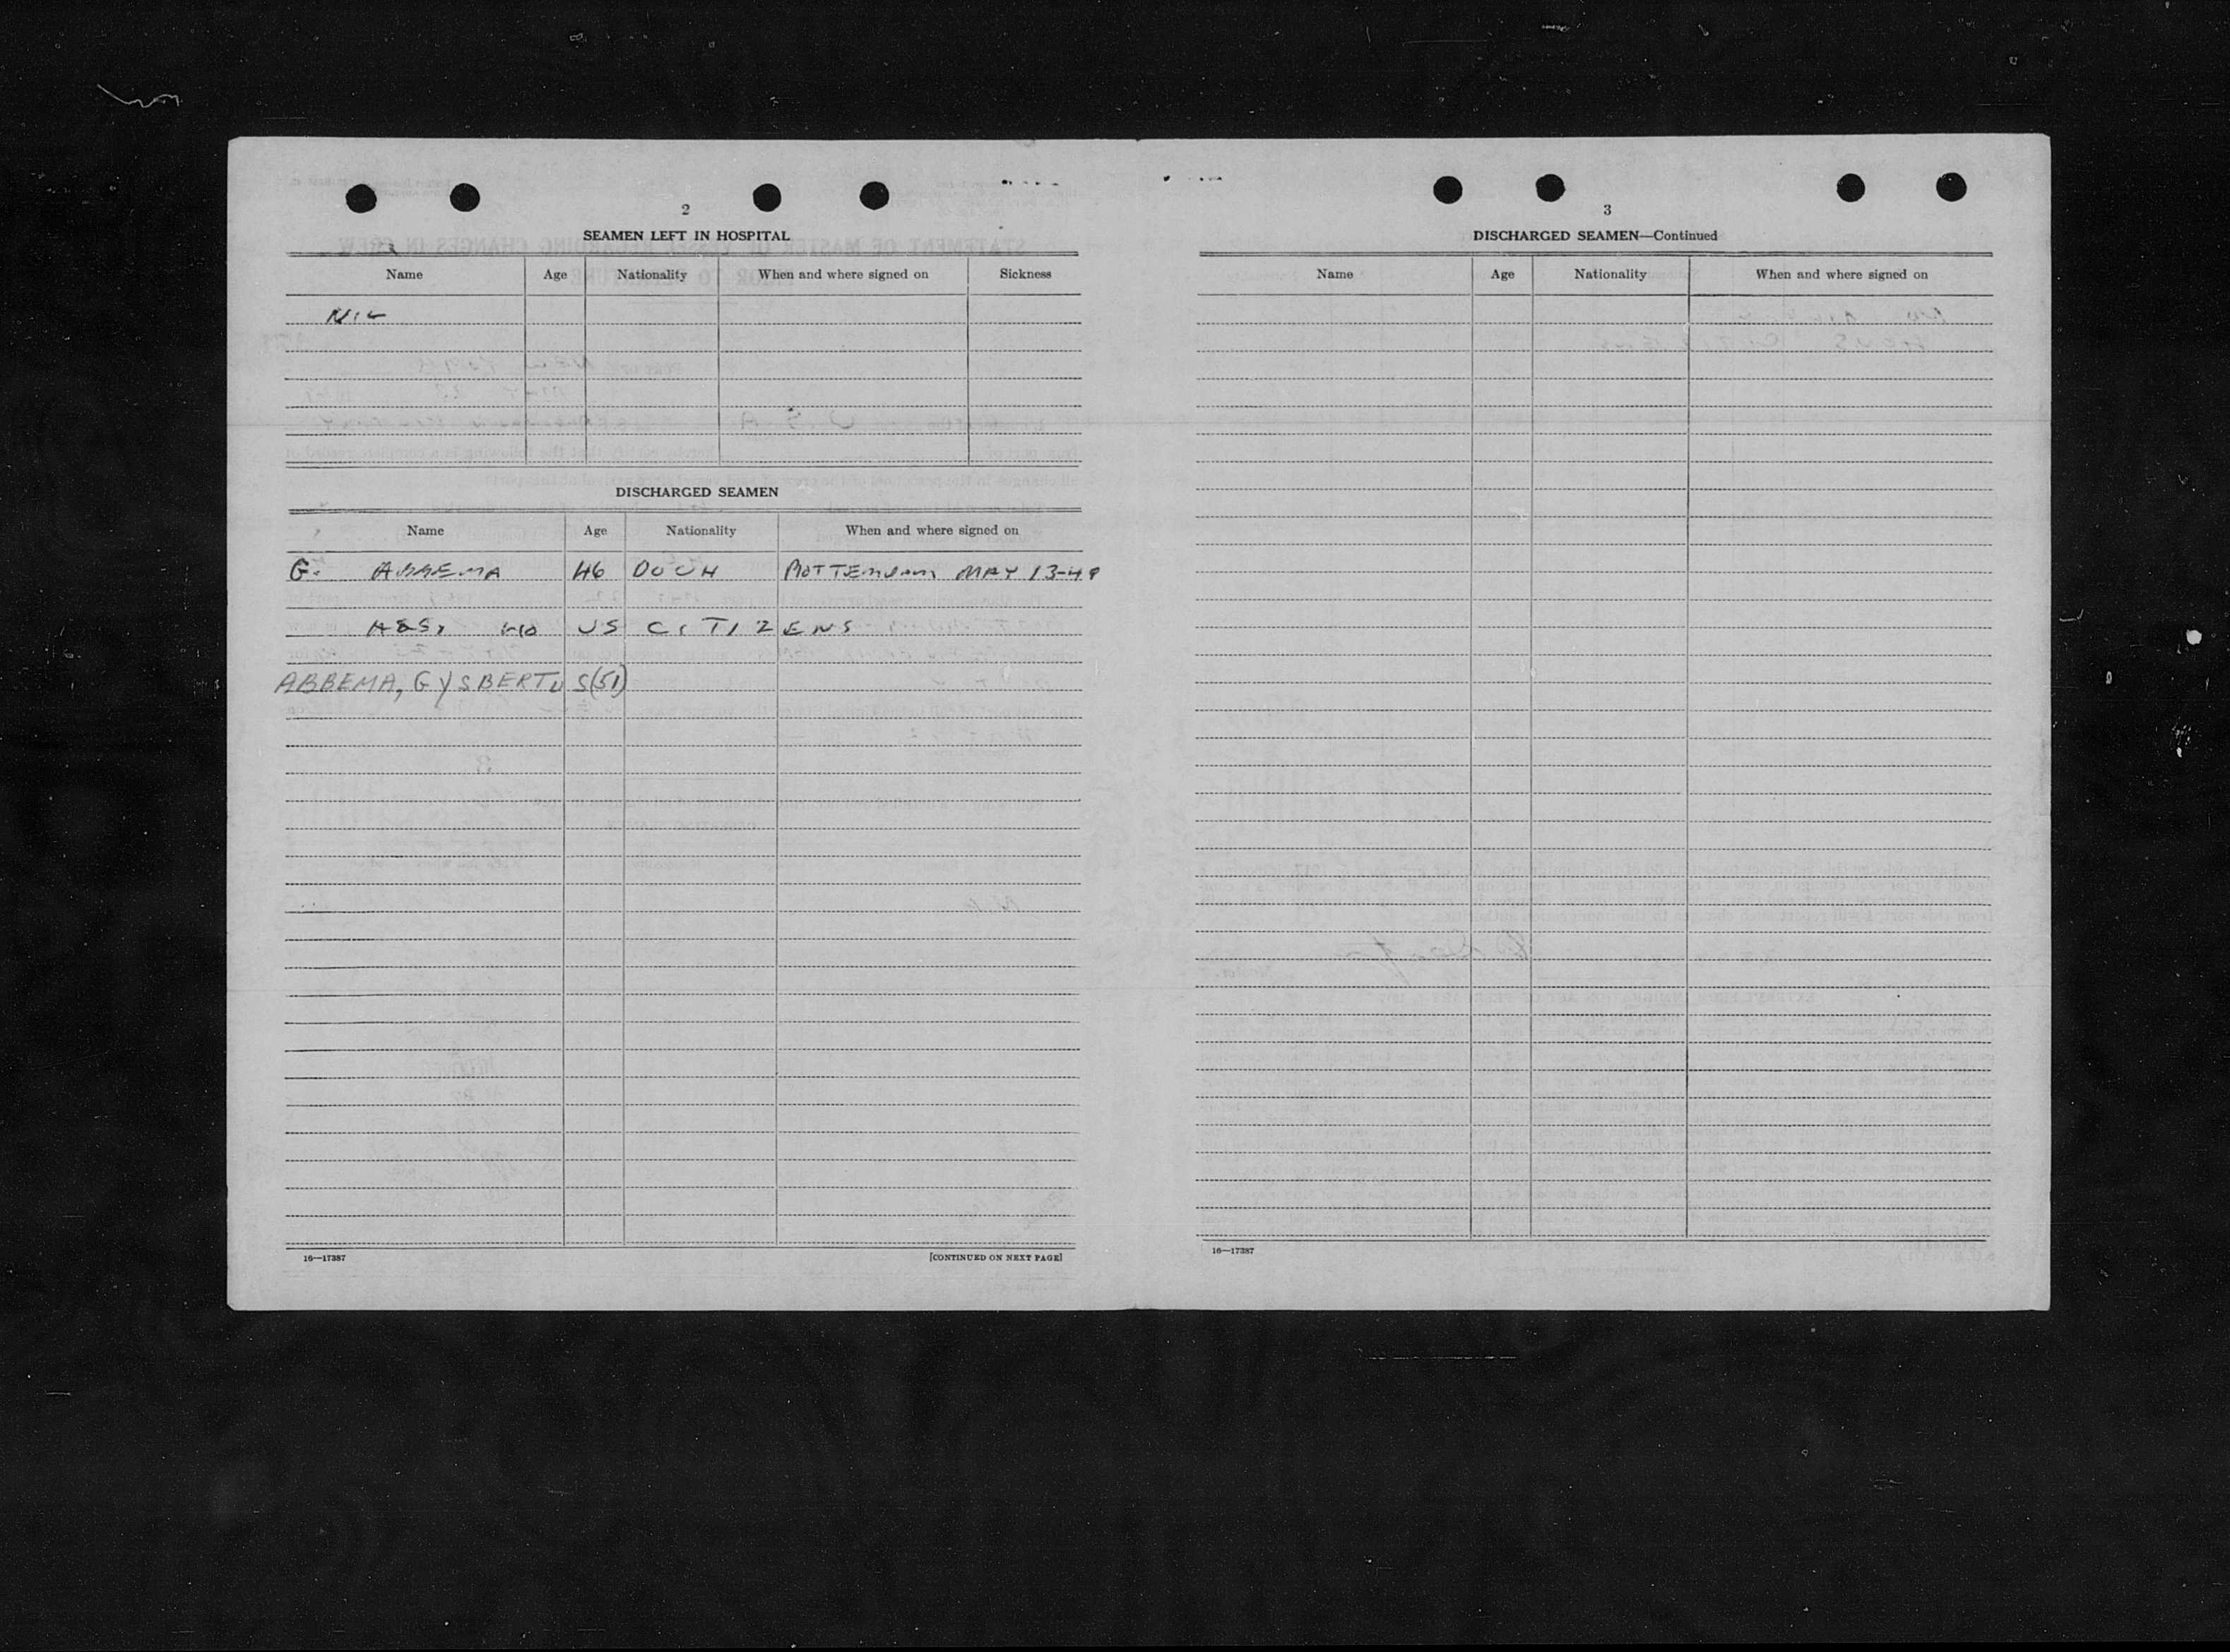 2
SEAMEN LEFT IN HOSPITAL
Name Age Nationality When and where signed on Sickness
NIL
DISCHARGED SEAMEN
Name Age Nationality When and where signed on
G. ABBEMA 46 DUCH ROTTERDAM MAY 13-49
US CITIZENS
ABBEMA, GYSBERTUS (51)
16—17387 [CONTINUED ON NEXT PAGE]
3
DISCHARGED SEAMEN—Continued
Name Age Nationality When and where signed on
16—17387